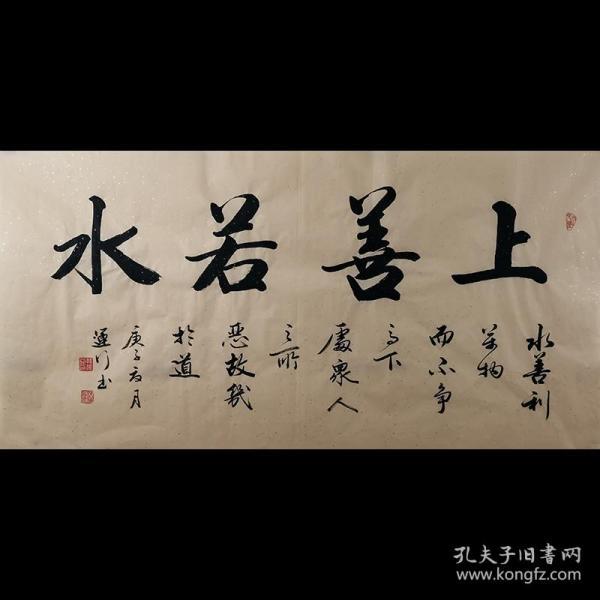 上善若水
水善利
萬物
而不争
下
處衆人
之所
惡故幾
於道
庚子夏月
书
孔夫子旧書网
www.kongfz.com